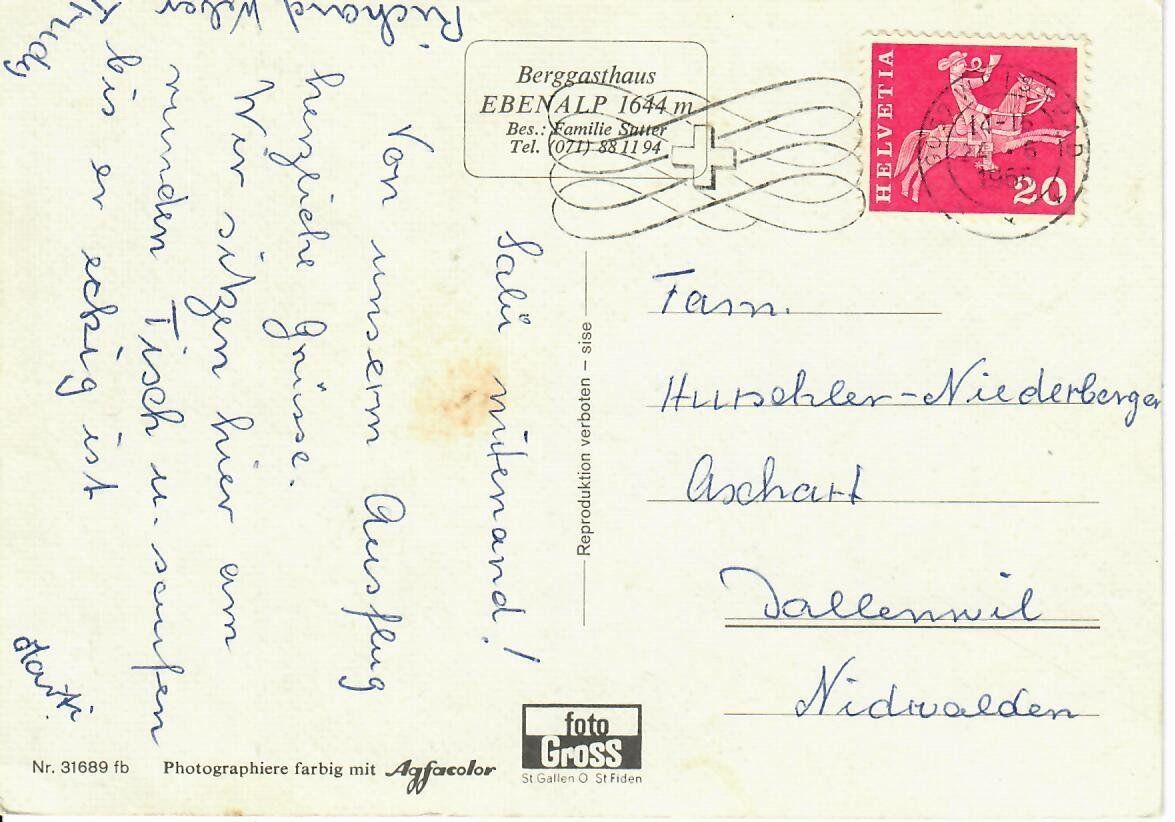 Berggasthaus
EBENALP 1644 m
Bes.: Familie Sutter
Tel. (071) 88 11 94
HELVETIA
20
Salü mitenand!
Von unserm Ausflug
herzliche Grüsse.
Wir sitzen hier am
runden Tisch u. saufen
bis er eckig ist
Richard Weber
Trudy
Martin
Reproduktion verboten – sise
Fam.
Aschart
Dallenwil
Nidwalden
Nr. 31689 fb
Photographiere farbig mit Agfacolor
foto
Gross
St Gallen O St Fiden